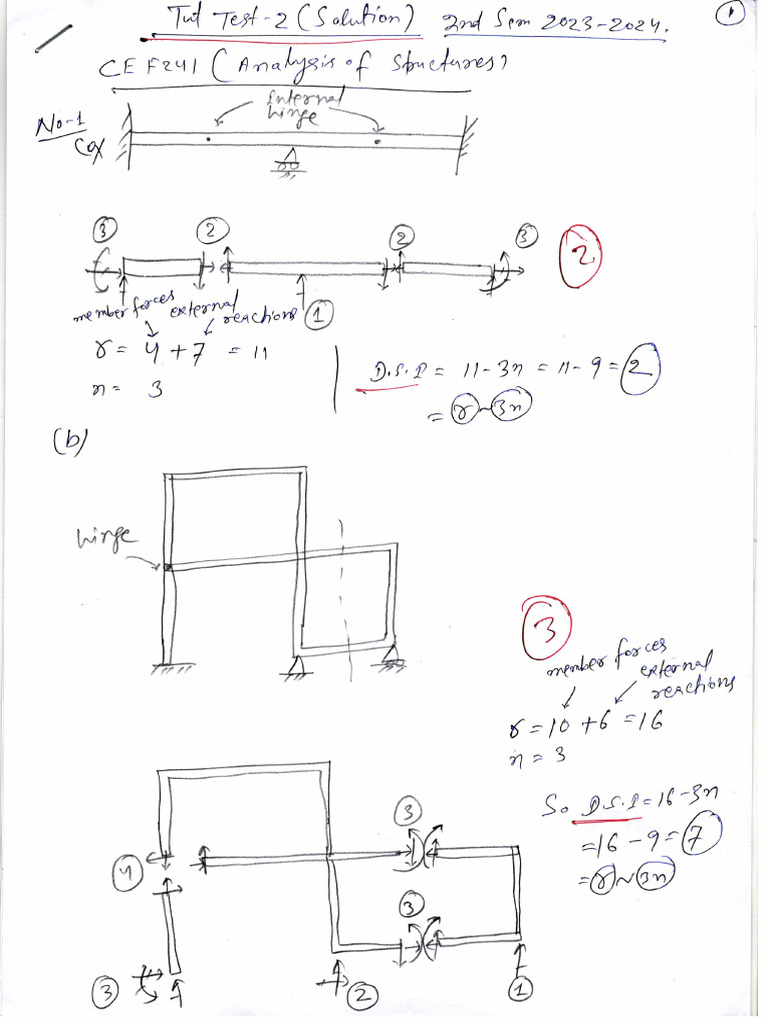 Tut Test-2 (Solution) 2nd Sem 2023-2024.
1
CE F241 (Analysis of Structures)
Internal
hinge
No-1
(a)
3
2
2
3
2
1
member forces external
reactions
r = 4 + 7 = 11
n = 3
D.S.I = 11 - 3n = 11 - 9 = 2
= r ~ 3n
(b)
hinge
3
member forces
external
reactions
r = 10 + 6 = 16
n = 3
So D.S.I = 16 - 3n
= 16 - 9 = 7
= r ~ 3n
3
4
3
3
2
1